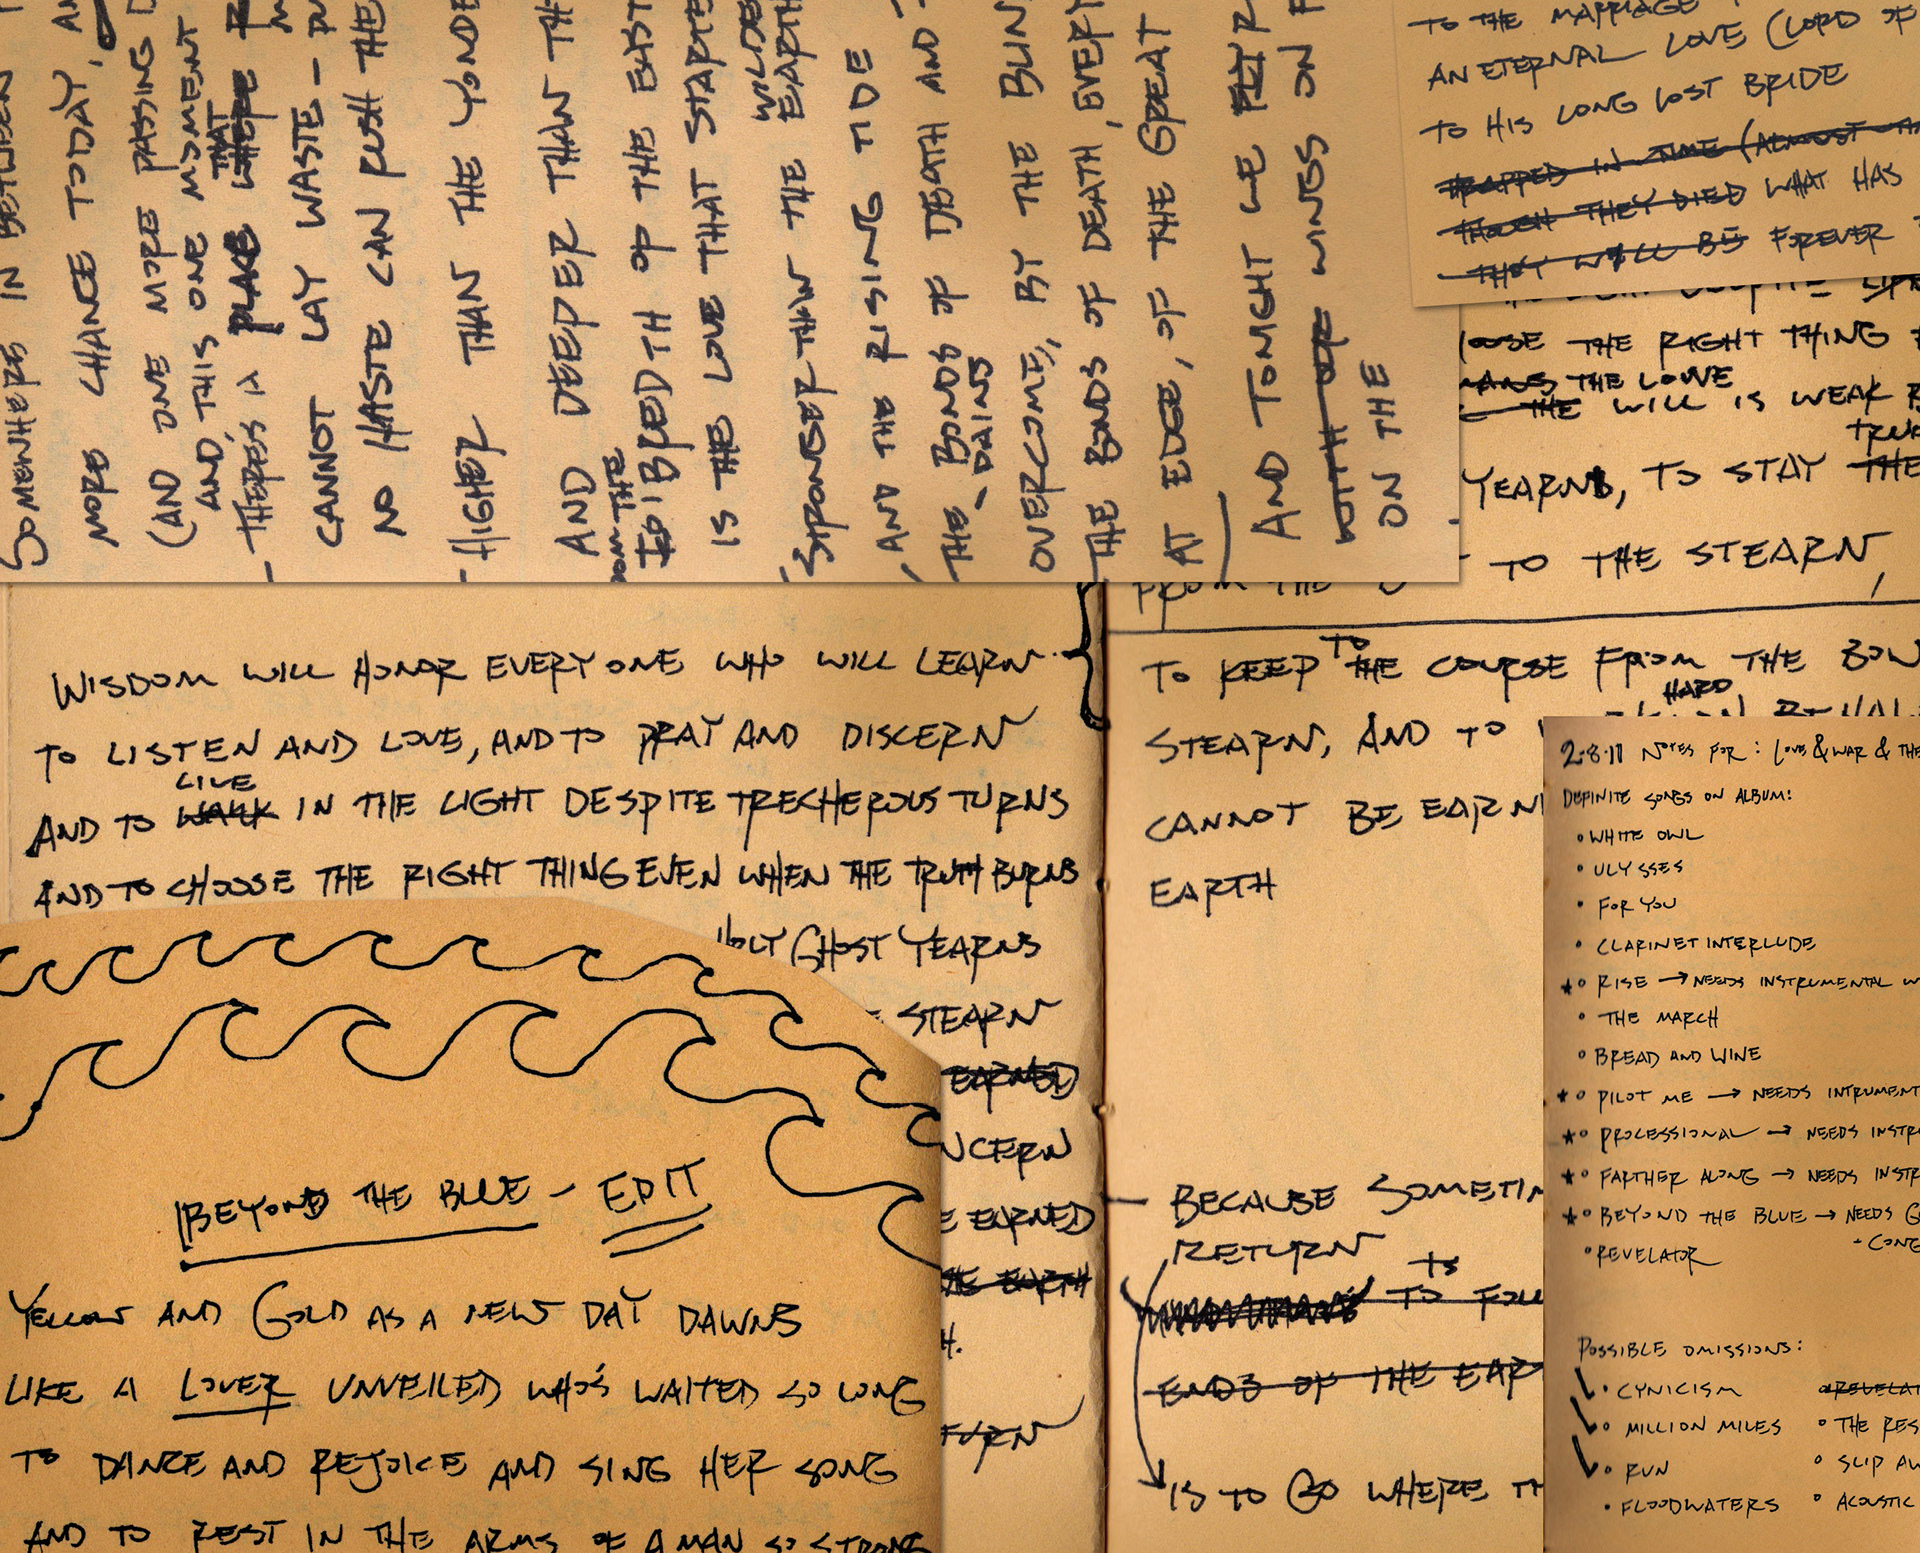 SOMEWHERE IN BETWEEN
MORE CHANCE TODAY,
(AND ONE MORE PASSING
AND THIS ONE MOMENT
THAT
- THERE'S A PLACE WHERE
CANNOT LAY WASTE -
NO HASTE CAN RUSH THE
- HIGHER THAN THE YONDE
AND DEEPER THAN TH
BREADTH OF THE EAST
IS THE LOVE THAT STARTE
WILDER
STRONGER THAN THE EARTH
AND THE RISING TIDE
THE BONDS OF DEATH AND
- PAINS
OVERCOME, BY THE
THE BONDS OF DEATH, EVERY
AT EDGE, OF THE GREAT
AND TONIGHT WE
WINGS ON
ON THE
TO THE MARRIAGE
AN ETERNAL LOVE (LORD OF
TO HIS LONG LOST BRIDE
TRAPPED IN TIME (ALMOST
THOUGH THEY DIED WHAT HAS
THEY WILL BE FOREVER
THE RIGHT THING
THE LOVE
THE WILL IS WEAK
YEARNS, TO STAY THE
TO THE STEARN,
FROM THE
WISDOM WILL HONOR EVERYONE WHO WILL LEARN
TO LISTEN AND LOVE, AND TO PRAY AND DISCERN
LIVE
AND TO WALK IN THE LIGHT DESPITE TRECHEROUS TURNS
AND TO CHOOSE THE RIGHT THING EVEN WHEN THE TRUTH BURNS
HOLY GHOST YEARNS
STEARN
EARNED
NCERN
E EARNED
THE EARTH
H.
TURN
TO
TO KEEP THE COURSE FROM THE BOW
HARD
STEARN, AND TO
CANNOT BE EARN
EARTH
- BECAUSE SOMETIM
RETURN
TO
TO FOLL
ENDS OF THE EAR
IS TO GO WHERE TH
BEYOND THE BLUE - EDIT
YELLOW AND GOLD AS A NEW DAY DAWNS
LIKE A LOVER UNVEILED WHO'S WAITED SO LONG
TO DANCE AND REJOICE AND SING HER SONG
AND TO REST IN THE ARMS OF A MAN SO STRONG
2·8·11 NOTES FOR: LOVE & WAR & THE
DEFINITE SONGS ON ALBUM:
• WHITE OWL
• ULYSSES
• FOR YOU
• CLARINET INTERLUDE
★ • RISE → NEEDS INSTRUMENTAL W
• THE MARCH
• BREAD AND WINE
★ • PILOT ME → NEEDS INTRUMENT
★ • PROCESSIONAL → NEEDS INSTR
★ • FARTHER ALONG → NEEDS INSTR
★ • BEYOND THE BLUE → NEEDS G
- CONG
• REVELATOR
POSSIBLE OMISSIONS:
• CYNICISM • REVELAT
• MILLION MILES • THE RES
• RUN • SLIP AW
• FLOODWATERS • ACOUSTIC